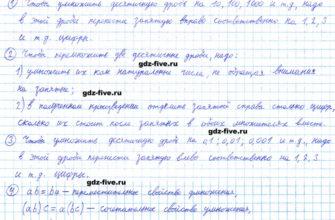 ① Чтобы умножить десятичную дробь на 10, 100, 1000 и т.д., надо
в этой дроби перенести запятую вправо соответственно на 1, 2, 3
и т.д. цифры.
gdz-five.ru
② Чтобы перемножить две десятичные дроби, надо:
1) умножить их как натуральные числа, не обращая внимания
на запятые;
gdz-five.ru
2) в полученном произведении отделить запятой справа столько цифр,
сколько их стоит после запятых в обоих множителях вместе.
gdz-five.ru
③ Чтобы умножить десятичную дробь на 0,1; 0,01; 0,001 и т.д., надо
в этой дроби перенести запятую влево соответственно на 1, 2, 3
и т.д. цифры.
gdz-five.ru
④ ab = ba – переместительное свойство умножения,
(ab)c = a(bc) – сочетательное свойство умножения,